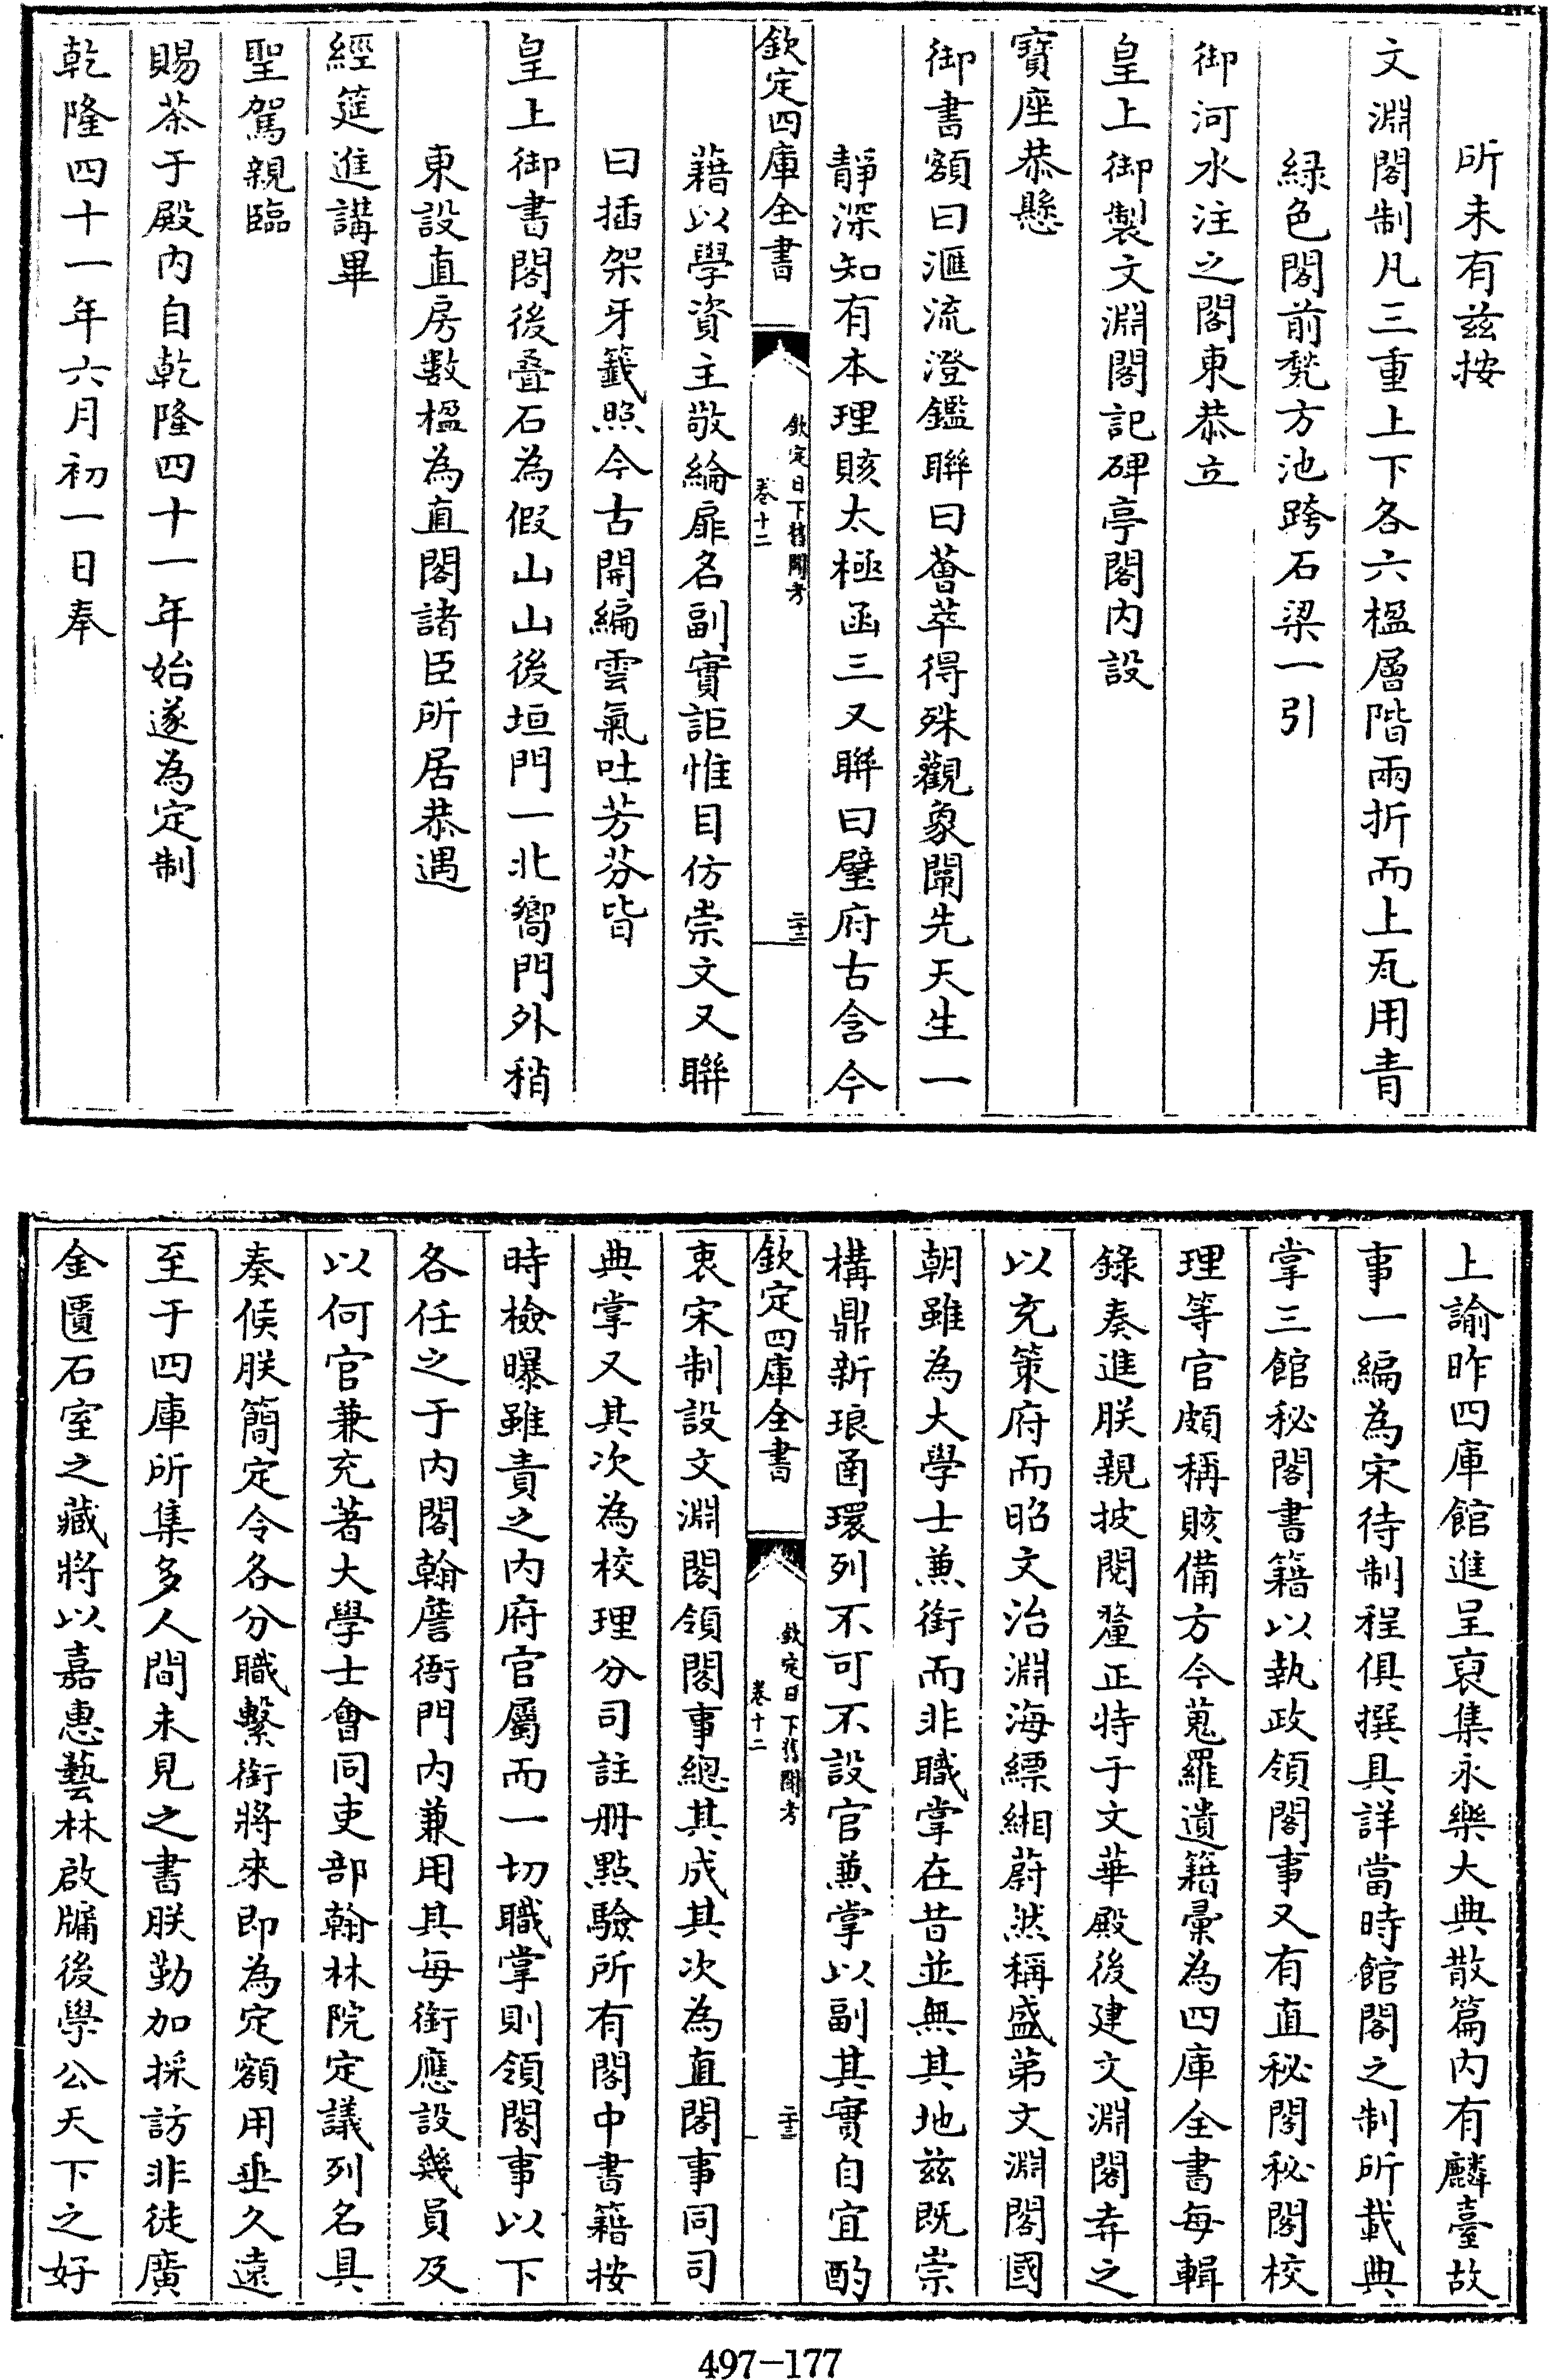 所未有兹按
文淵閣制凡三重上下各六楹層階兩折而上瓦用青
緑色閣前甃方池跨石梁一引
御河水注之閣東恭立
皇上御製文淵閣記碑亭閣内設
寳座恭懸
御書額曰滙流澄鑑聯曰薈萃得殊觀象闡先天生一
靜深知有本理賅太極函三又聯曰璧府古含今
欽定四庫全書
欽定日下舊聞考
卷十二
二十二
藉以學資主敬綸扉名副實詎惟目仿崇文又聯
曰插架牙籤照今古開編雲氣吐芳芬皆
皇上御書閣後疊石為假山山後垣門一北嚮門外稍
東設直房數楹為直閣諸臣所居恭遇
經筵進講畢
聖駕親臨
賜茶于殿内自乾隆四十一年始遂為定制
乾隆四十一年六月初一日奉
上諭昨四庫館進呈裒集永樂大典散篇内有麟臺故
事一編為宋待制程俱撰具詳當時館閣之制所載典
掌三館秘閣書籍以執政領閣事又有直秘閣秘閣校
理等官頗稱賅備方今蒐羅遺籍彙為四庫全書每輯
錄奏進朕親披閱釐正特于文華殿後建文淵閣弆之
以充策府而昭文治淵海縹緗蔚然稱盛第文淵閣國
朝雖為大學士兼銜而非職掌在昔並無其地兹既崇
構鼎新琅函環列不可不設官兼掌以副其實自宜酌
欽定四庫全書
欽定日下舊聞考
卷十二
二十三
衷宋制設文淵閣領閣事總其成其次為直閣事同司
典掌又其次為校理分司註册點驗所有閣中書籍按
時檢曝雖責之内府官屬而一切職掌則領閣事以下
各任之于内閣翰詹衙門内兼用其每銜應設幾員及
以何官兼充著大學士會同吏部翰林院定議列名具
奏候朕簡定令各分職繫銜將來即為定額用垂久遠
至于四庫所集多人間未見之書朕勤加採訪非徒廣
金匱石室之藏將以嘉惠藝林啟牖後學公天下之好
497-177